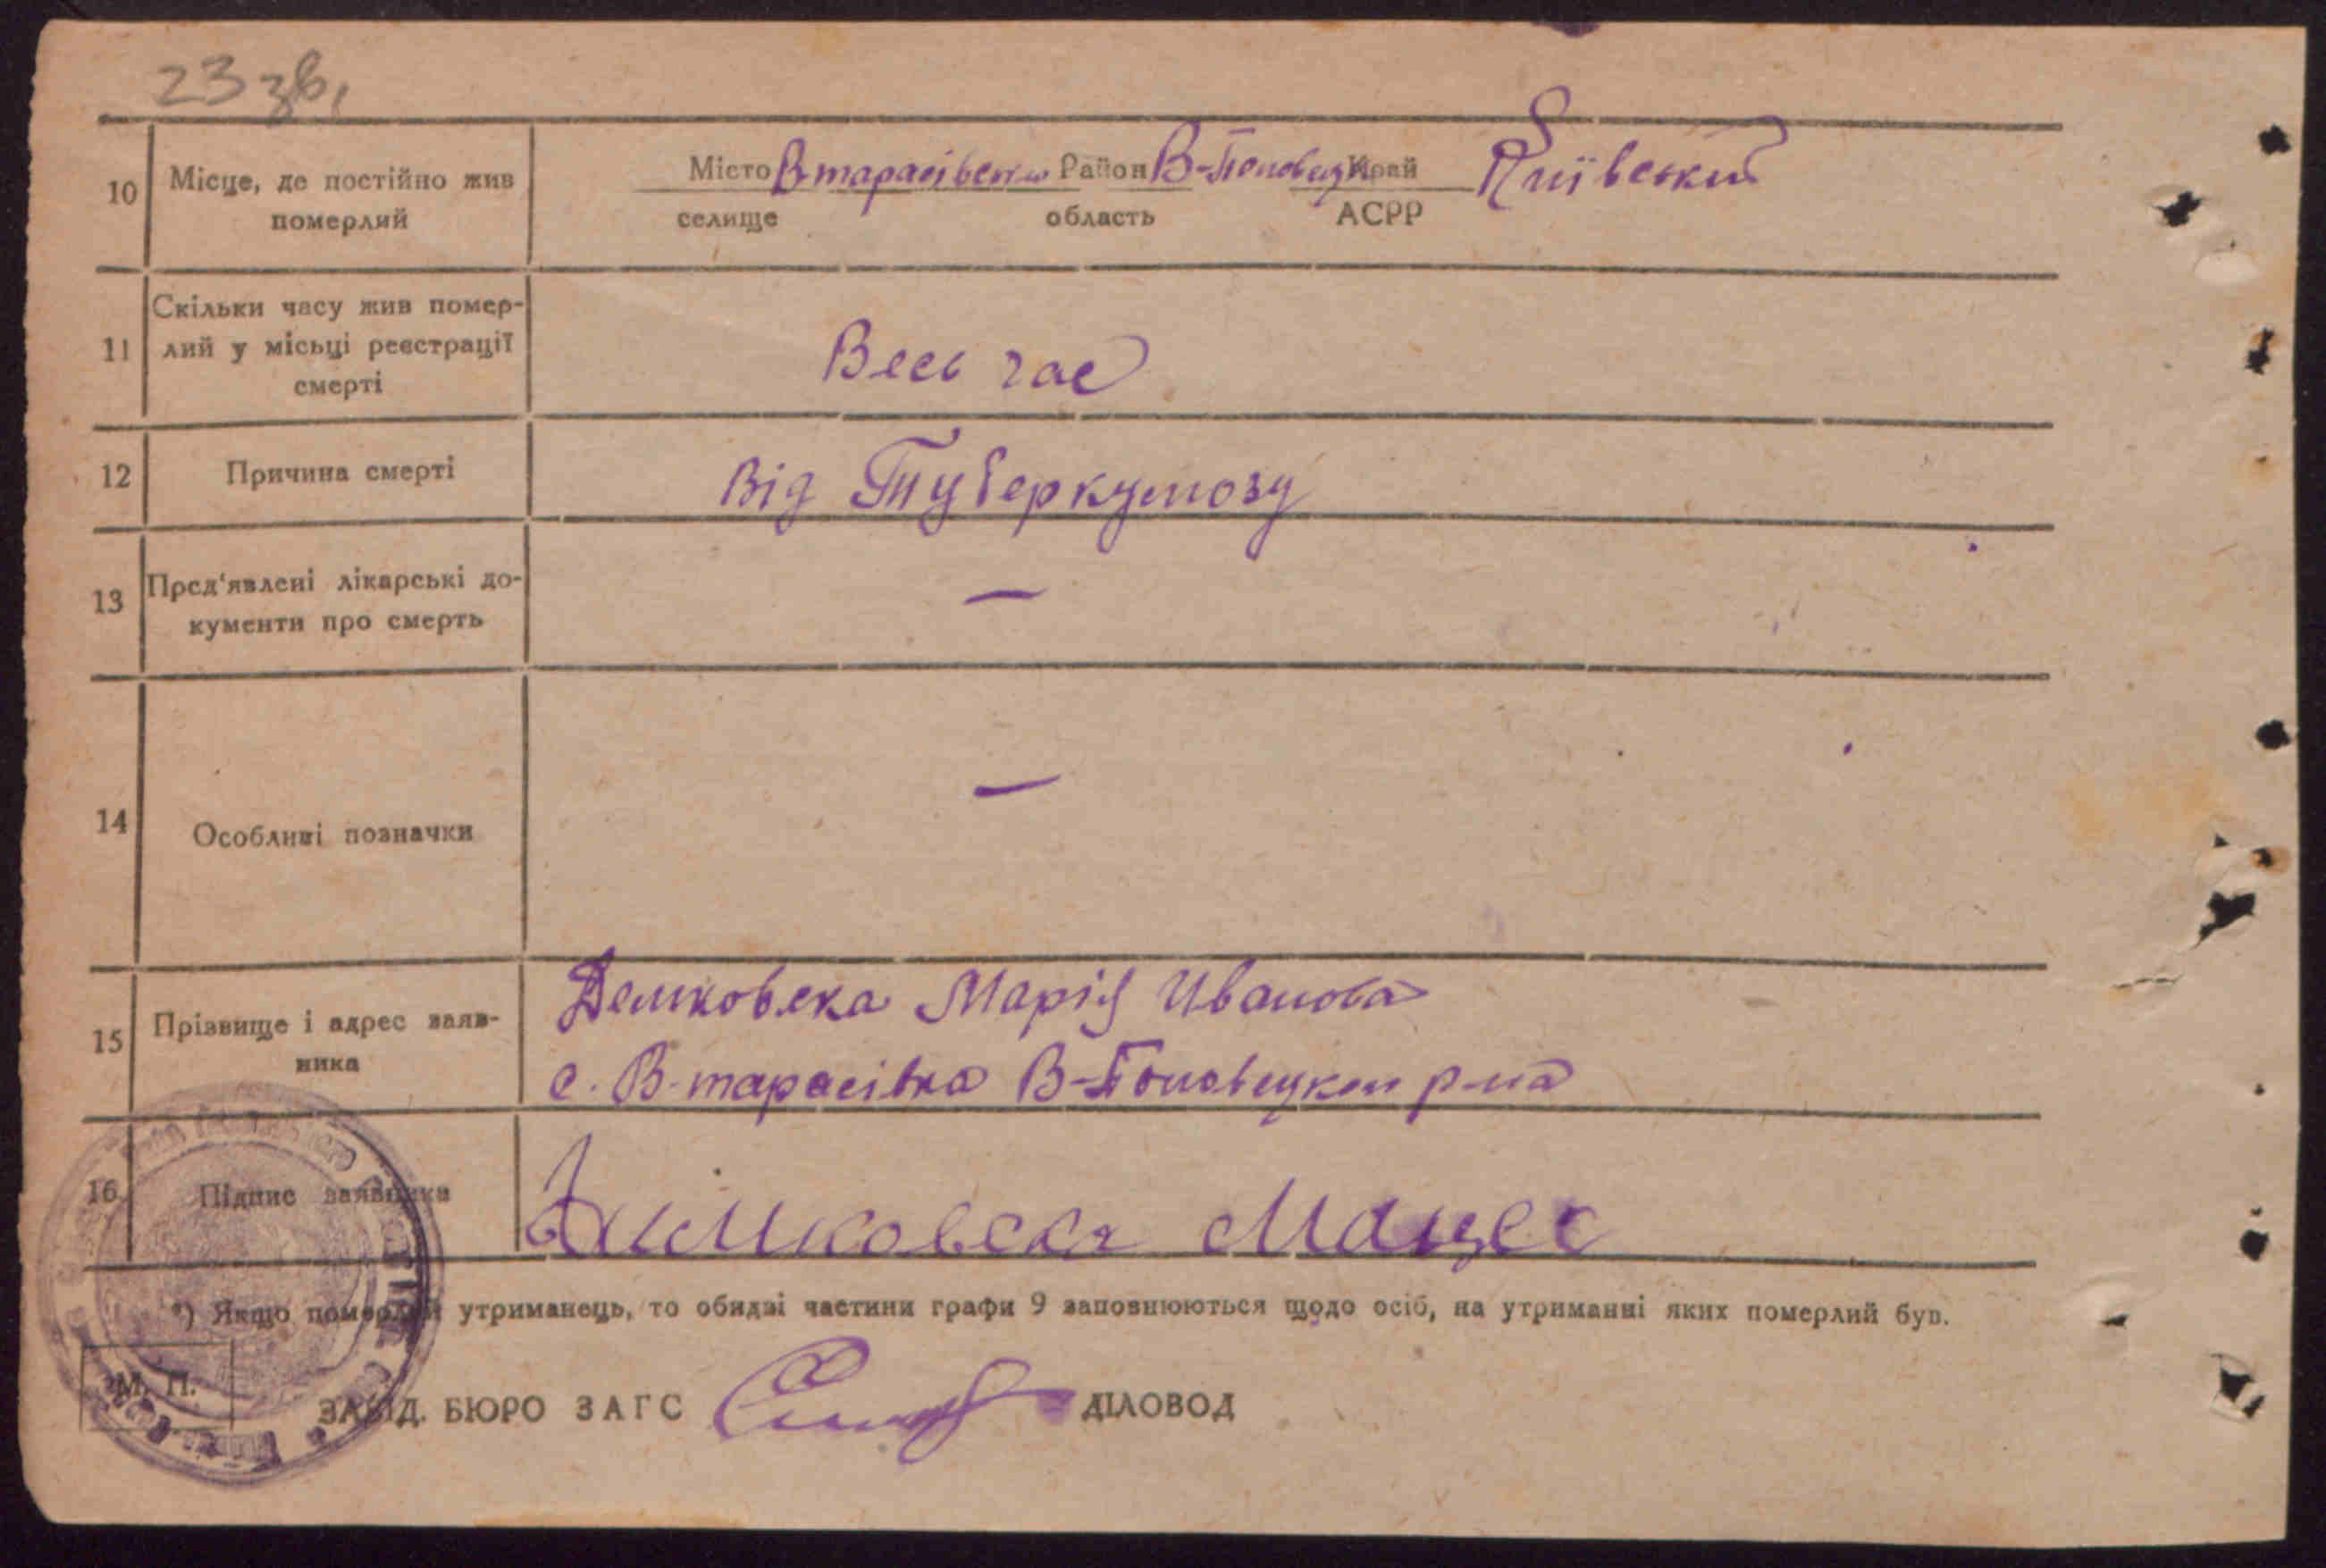 23 зв,
10 Місце, де постійно жив померлий
Місто В тарасівська Район В-Поповецьк Край Київський
селище область АСРР
11 Скільки часу жив помер-
лий у місьці реєстрації
смерті
Весь час
12 Причина смерті Від Туберкульозу
13 Пред'явлені лікарські до-
кументи про смерть
—
14 Особливі позначки
—
15 Прізвище і адрес заяв-
ника
Демковска Марія Иванова
с. В-тарасівка В-Поповецком р-на
16. Підпис заявника
*) Якщо померлий утриманець, то обидві частини графи 9 заповнюються щодо осіб, на утриманні яких померлий був.
М. П.
ЗАВІД. БЮРО ЗАГС ДІЛОВОД